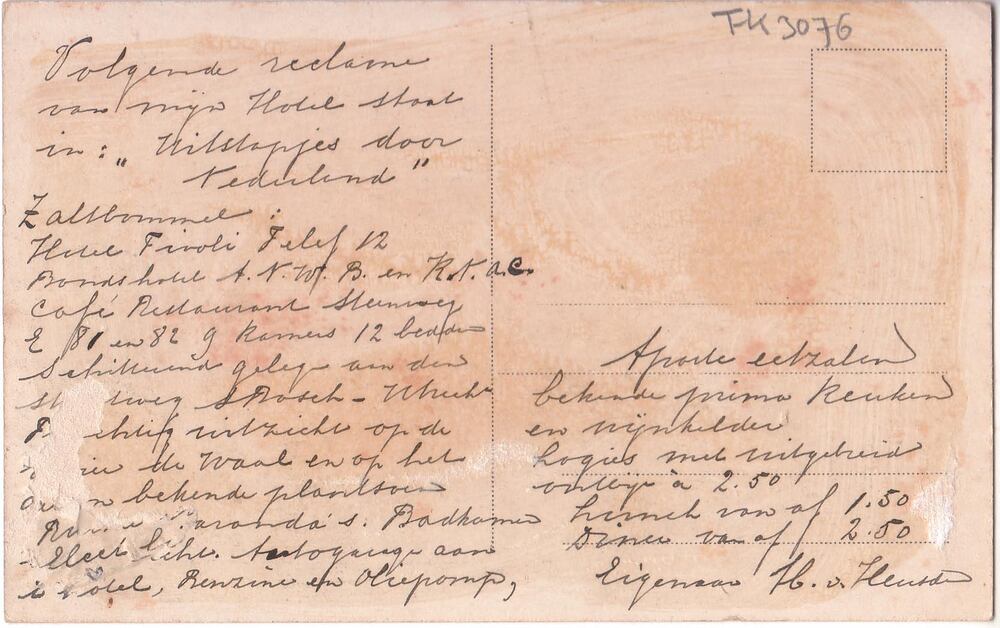 TK 3076
Volgende reclame
van mijn Hotel staat
in: "Uitstapjes door
Nederland"
Zaltbommel:
Hotel Tivoli Telef 12
Bondshotel A.N.W.B. en K.N.A.C.
Café Restaurant Steenweg
E 81 en 82 9 kamers 12 bedden
Schitterend gelegen aan den
'sBosch - Utrecht
uitzicht op de
de Waal en op het
bekende plantsoen
Varanda's. Badkamer
Elect licht. Autogarage aan
Hotel, Benzine en Oliepomp,
Aparte eetzalen
bekende prima Keuken
en wijnkelder
Logies met uitgebreid
ontbijt à 2.50
Lunch van af 1.50
Diner van af 2.50
Eigenaar H. v. Heusden